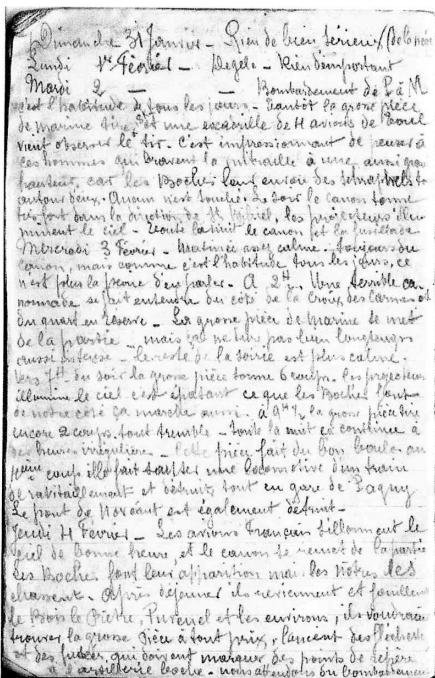 Dimanche 31 Janvier - Rien de bien sérieux (de la
Lundi 1er Février - Degele - Rien d'important
Mardi 2 — — Bombardement de P à M
c'est l'habitude de tous les jours - Tantôt la grosse pièce
de marine tire et une escadrille de 4 avions de
vient observer le tir. C'est impressionnant de penser à
ces hommes qui bravent la mitraille à une aussi grande
hauteur, car les Boches leur envoie des schrapnells
autour d'eux. Aucun n'est touché. Le soir le canon tonne
très fort dans la direction de St Mihiel, les projecteurs illu
minent le ciel - Toute la nuit le canon et la fusillade
Mercredi 3 Février - Matinée assez calme. Toujours du
canon, mais comme c'est l'habitude tous les jours, ce
n'est plus la peine d'en parler. A 2h Une terrible ca
nonnade se fait entendre du côté de la Croix des Carmes et
du quart en réserve - La grosse pièce de Marine se met
de la partie - mais ça ne dure pas bien longtemps
aussi intense - le reste de la soirée est plus calme -
Vers 7h du soir la grosse pièce tonne 6 coups. les projecteurs
illumine le ciel c'est épatant ce que les Boches font
de notre côté ça marche aussi. à 9h1/2 la grosse pièce tire
encore 2 coups, tout tremble - toute la nuit ça continue à
des heures irrégulières - Cette pièce fait du bon boulot au
coup elle fait sauter une locomotive d'un train
de ravitaillement et détruit tout en gare de Pagny
Le pont de Novéant est également détruit -
Jeudi 4 Février - Les avions Français sillonnent le
ciel de bonne heure, et le canon se remet de la partie
Les Boches font leur apparition mais les nôtres les
chassent. Après déjeuner ils reviennent et fouillent
le Bois le Prêtre, Puvenel et les environs, ils voudraient
trouver la grosse Pièce à tout prix, lancent des
et des fusées qui doivent marquer des points de repère
à l'artillerie boche - nous attendons du bombardement